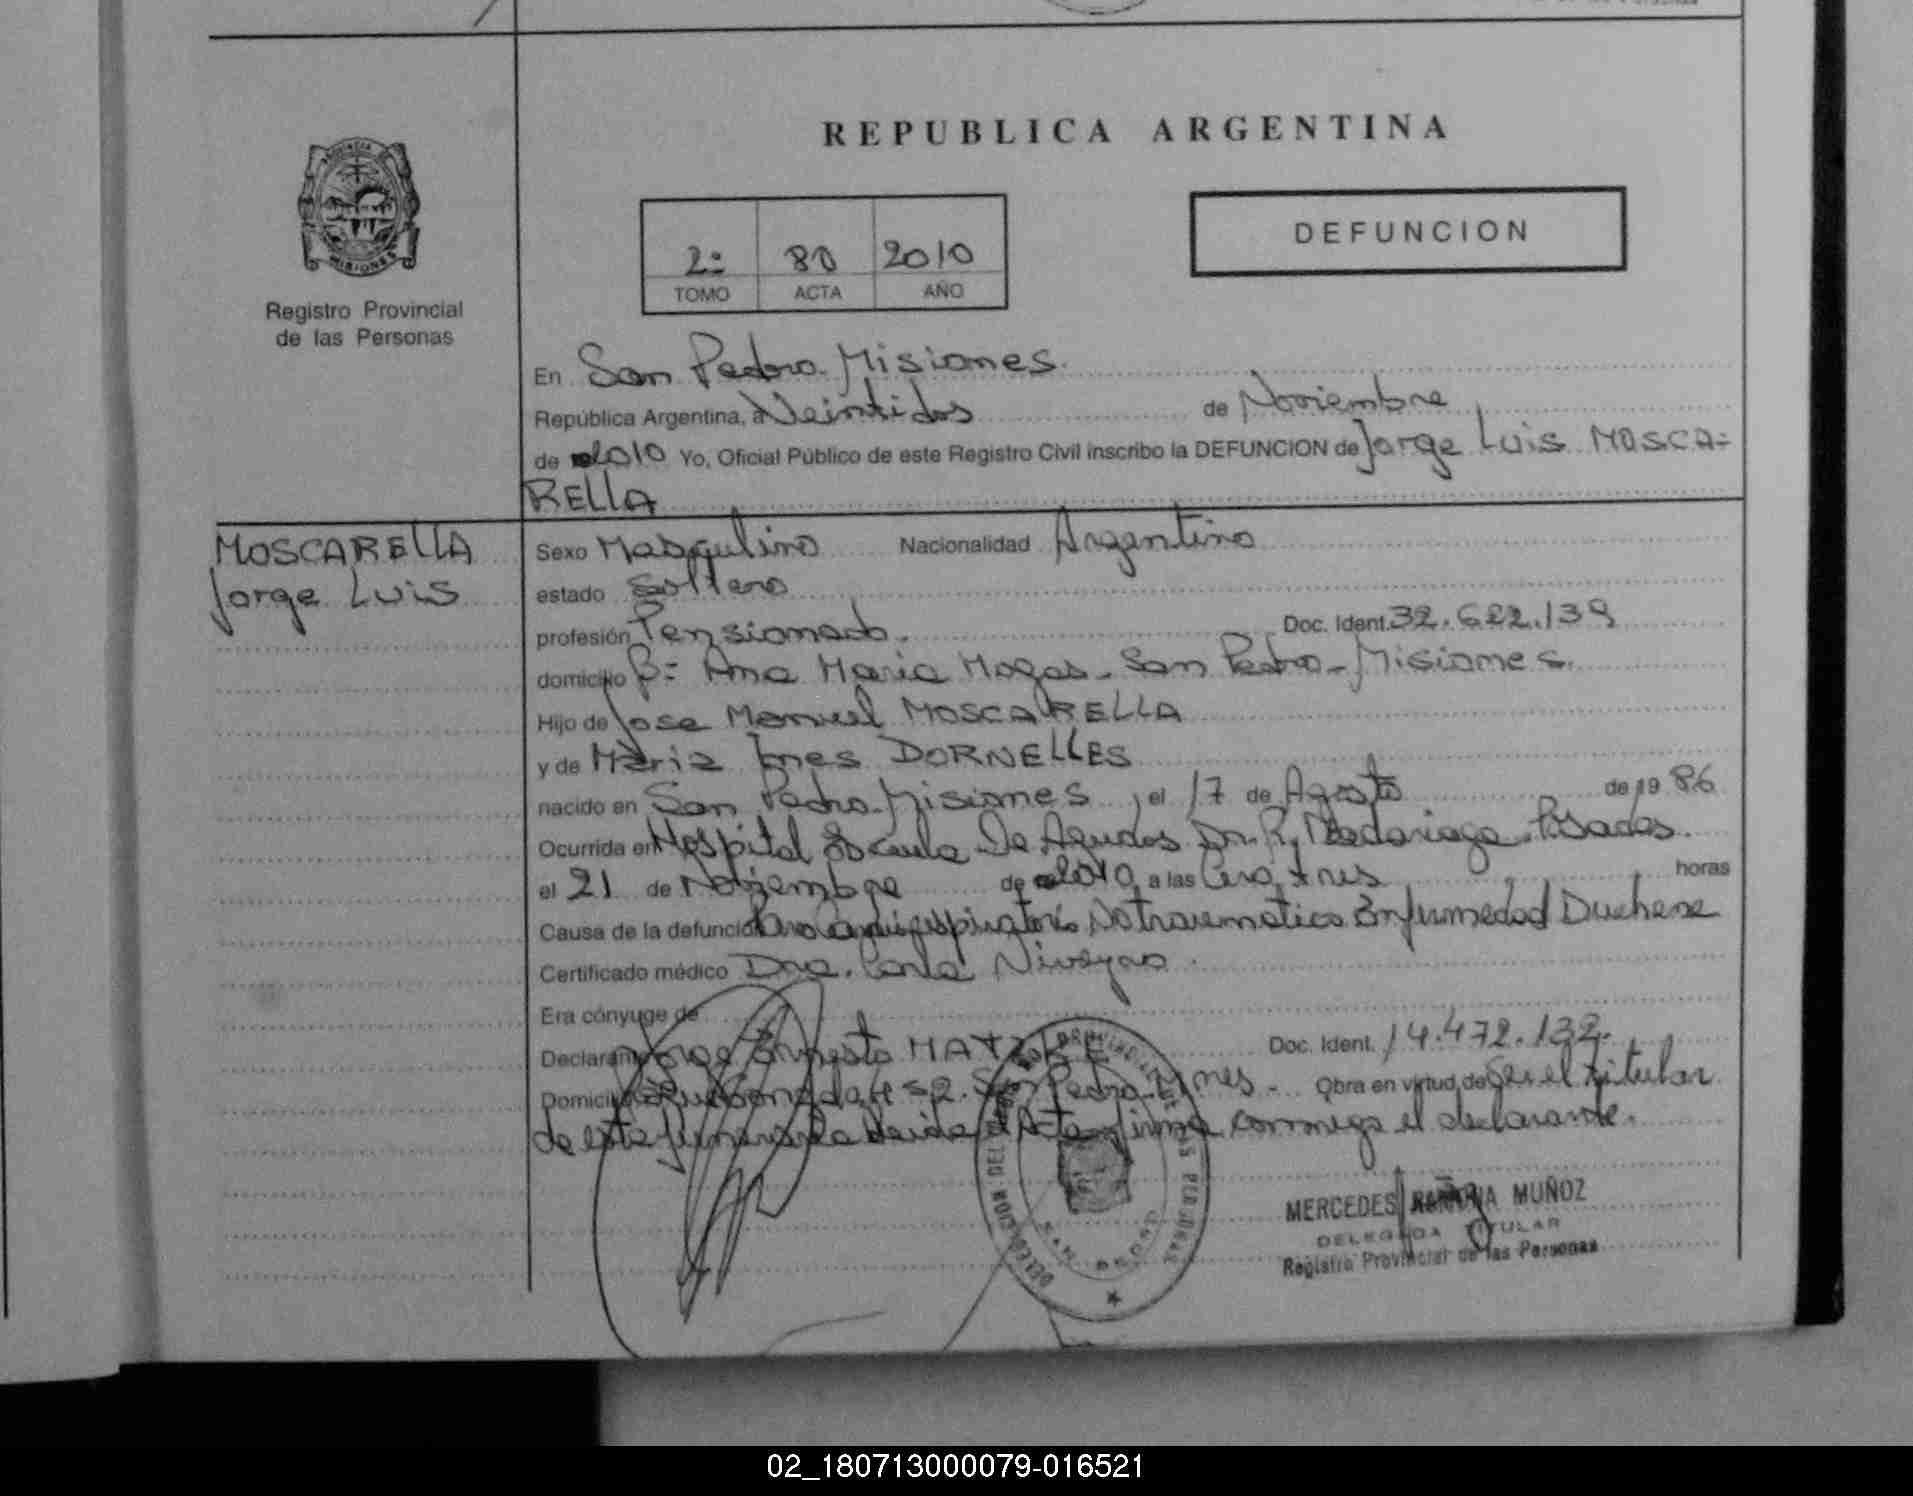 REPUBLICA ARGENTINA
PROVINCIA DE
MISIONES
Registro Provincial
de las Personas
2º 80 2010
TOMO ACTA AÑO
DEFUNCION
En San Pedro Misiones
República Argentina, a Veintidos de Noviembre
de 2010 Yo, Oficial Público de este Registro Civil inscribo la DEFUNCION de Jorge Luis MOSCA=
RELLA
MOSCARELLA
Jorge Luis
Sexo Masqulino Nacionalidad Argentino
estado Soltero
profesión Pensionado. Doc. Ident. 32.622.139
domicilio Bº Ana Maria Mogas - San Pedro - Misiones.
Hijo de Jose Manuel MOSCARELLA
y de Maria Ines DORNELLES
nacido en San Pedro Misiones, el 17 de Agosto de 19 86
Ocurrida en Hospital Escuela De Agudos Dr. R. Madariaga. Posadas.
el 21 de Noviembre de 2010 a las Cero, tres horas
Causa de la defunción Paro Cardiorespiratorio No traumatico Enfermedad Duchene
Certificado médico Dra. Carla
Era cónyuge de
Declarante Jorge Ernesto Doc. Ident. 14.472.132.
Domicilio San Pedro Mnes - Obra en virtud de Ser el titular
de esta funeraria Leida el Acta firma conmigo el declarante.
DELEGACION DEL REGISTRO PROVINCIAL DE LAS PERSONAS
SAN PEDRO
MERCEDES MUÑOZ
DELEGADA TITULAR
Registro Provincial de las Personas
02_180713000079-016521